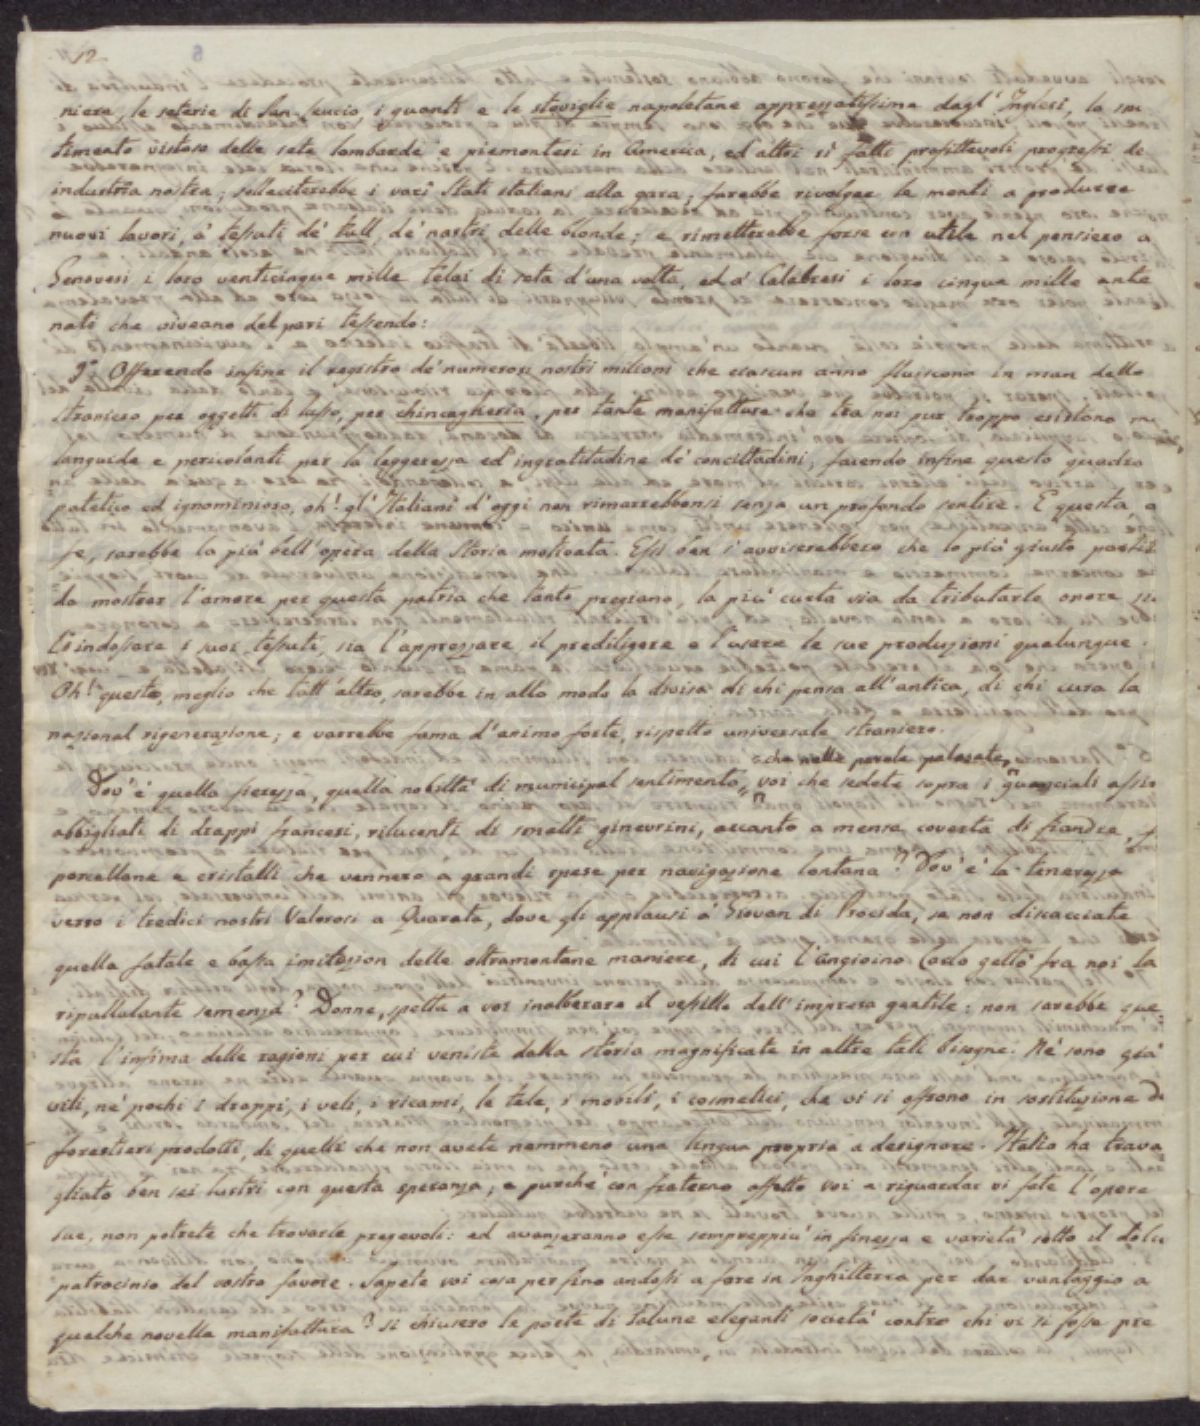 12
niera, le seterie di San-Leucio, i guanti e le stoviglie napoletane apprezzatissime dagl' Inglesi, lo smer
timento vistoso delle sete lombarde e piemontesi in America, ed altri sì fatti profittevoli progressi de
industria nostra; solleciterebbe i vari Stati italiani alla gara; farebbe rivolgere le menti a produrre
nuovi lavori, a' tessuti de' tull, de' nastri delle blonde; e rimetterebbe forse con utile nel pensiero a
Genovesi i loro venticinque mille telai di seta d'una volta, ed a' Calabresi i loro cinque mille ante
nati che viveano del pari tessendo:
9.° Offerendo infine il registro de' numerosi nostri milioni che ciascun anno fluiscono in man dello
straniero per oggetti di lusso, per chincaglieria, per tante manifatture che tra noi pur troppo esistono ma
languide e pericolanti per la leggerezza ed ingratitudine de' concittadini, facendo infine questo quadro
patetico ed ignominioso, oh! gl' Italiani d'oggi non rimarrebbonsi senza un profondo sentire. E questa, a
se, sarebbe la più bell' opera della Storia motivata. Essi ben s'avviserebbero che lo più giusto partit
da mostrar l'amore per questa patria che tanto pregiano, la più certa via da tributarle onore si
l'indossare i suoi tessuti, sia l'apprezzare il prediligere e l'usare le sue produzioni qualunque.
Oh! questo, meglio che tutt' altro, sarebbe in alto modo la divisa di chi pensa all'antica, di chi cura la
nazional rigenerazione; e varrebbe fama d'animo forte, rispetto universale straniero.
che nelle parole palesate,
Dov' è quella fierezza, quella nobiltà di municipal sentimento, voi che sedete sopra i guanciali assir
abbigliati di drappi francesi, rilucenti di smalti ginevrini, accanto a mensa coverta di fiandra,
porcellane e cristalli che vennero a grandi spese per navigazione lontana? Dov' è la tenerezza
verso i tredici nostri Valorosi a Quarata, dove gli applausi a' Giovan di Procida, se non discacciate
quella fatale e bassa imitazion delle oltramontane maniere, di cui l'angioino Carlo gettò fra noi la
ripullulante semenza? Donne, spetta a voi inalberare il vessillo dell' impresa gentile: non sarebbe que
sta l'infima delle ragioni per cui veniste dalla storia magnificate in altre tali bisogne. Nè sono già
vili, nè pochi i drappi, i veli, i ricami, le tele, i mobili, i cosmetici, che vi si offrono in sostituzione de
forestieri prodotti, di quelli che non avete nemmeno una lingua propria a designare. Italia ha trava
gliato ben sei lustri con questa speranza; e purchè con fraterno affetto voi a riguardar vi fate l'opere
sue, non potrete che trovarle pregevoli: ed avanzeranno esse sempreppiù in finezza e varietà sotto il dolce
patrocinio del vostro favore. Sapete voi cosa per fino andossi a fare in Inghilterra per dar vantaggio a
qualche novella manifattura? Si chiusero le porte di talune eleganti società contro chi vi si fosse pre